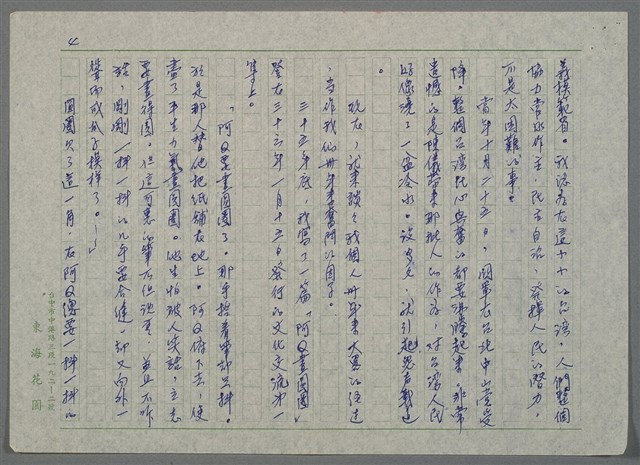 4
義模範省。我認為在這小小的台灣，人們整個
協力當家作主，民主自治，發揮人民的潛力，
不是太困難的事。
當年十月二十五日，國軍在台北中山堂受
降。整個台灣民心興奮的都要沸騰起來。非常
遺憾的是陳儀帶來那批人的作為，對台灣人民
好像澆了一盆冷水。沒多久，就引起怨聲載道
。
現在，就來談談我個人卅年來大略的經過
，當作我個卅年來奮鬥的因子。
三十五年底，我寫了一篇「阿Q畫圓圈」
登在三十六年一月十五日發行的文化交流第一
集上。
「阿Q要畫圓圈了。那手捏著筆卻只抖。
於是那人替他把紙鋪在地上。阿Q俯下去，使
盡了平生力氣畫圓圈。他生怕被人笑話，立志
要畫得圓。但這可惡的筆不但很重，並且不聽
話，剛剛一抖一抖的幾乎要合縫，卻又向外一
聳，畫成瓜子模樣了。」
圓圈欠了這一角，在阿Q總要一抖一抖的
台中市中港路三段一九二-二號
東海花園